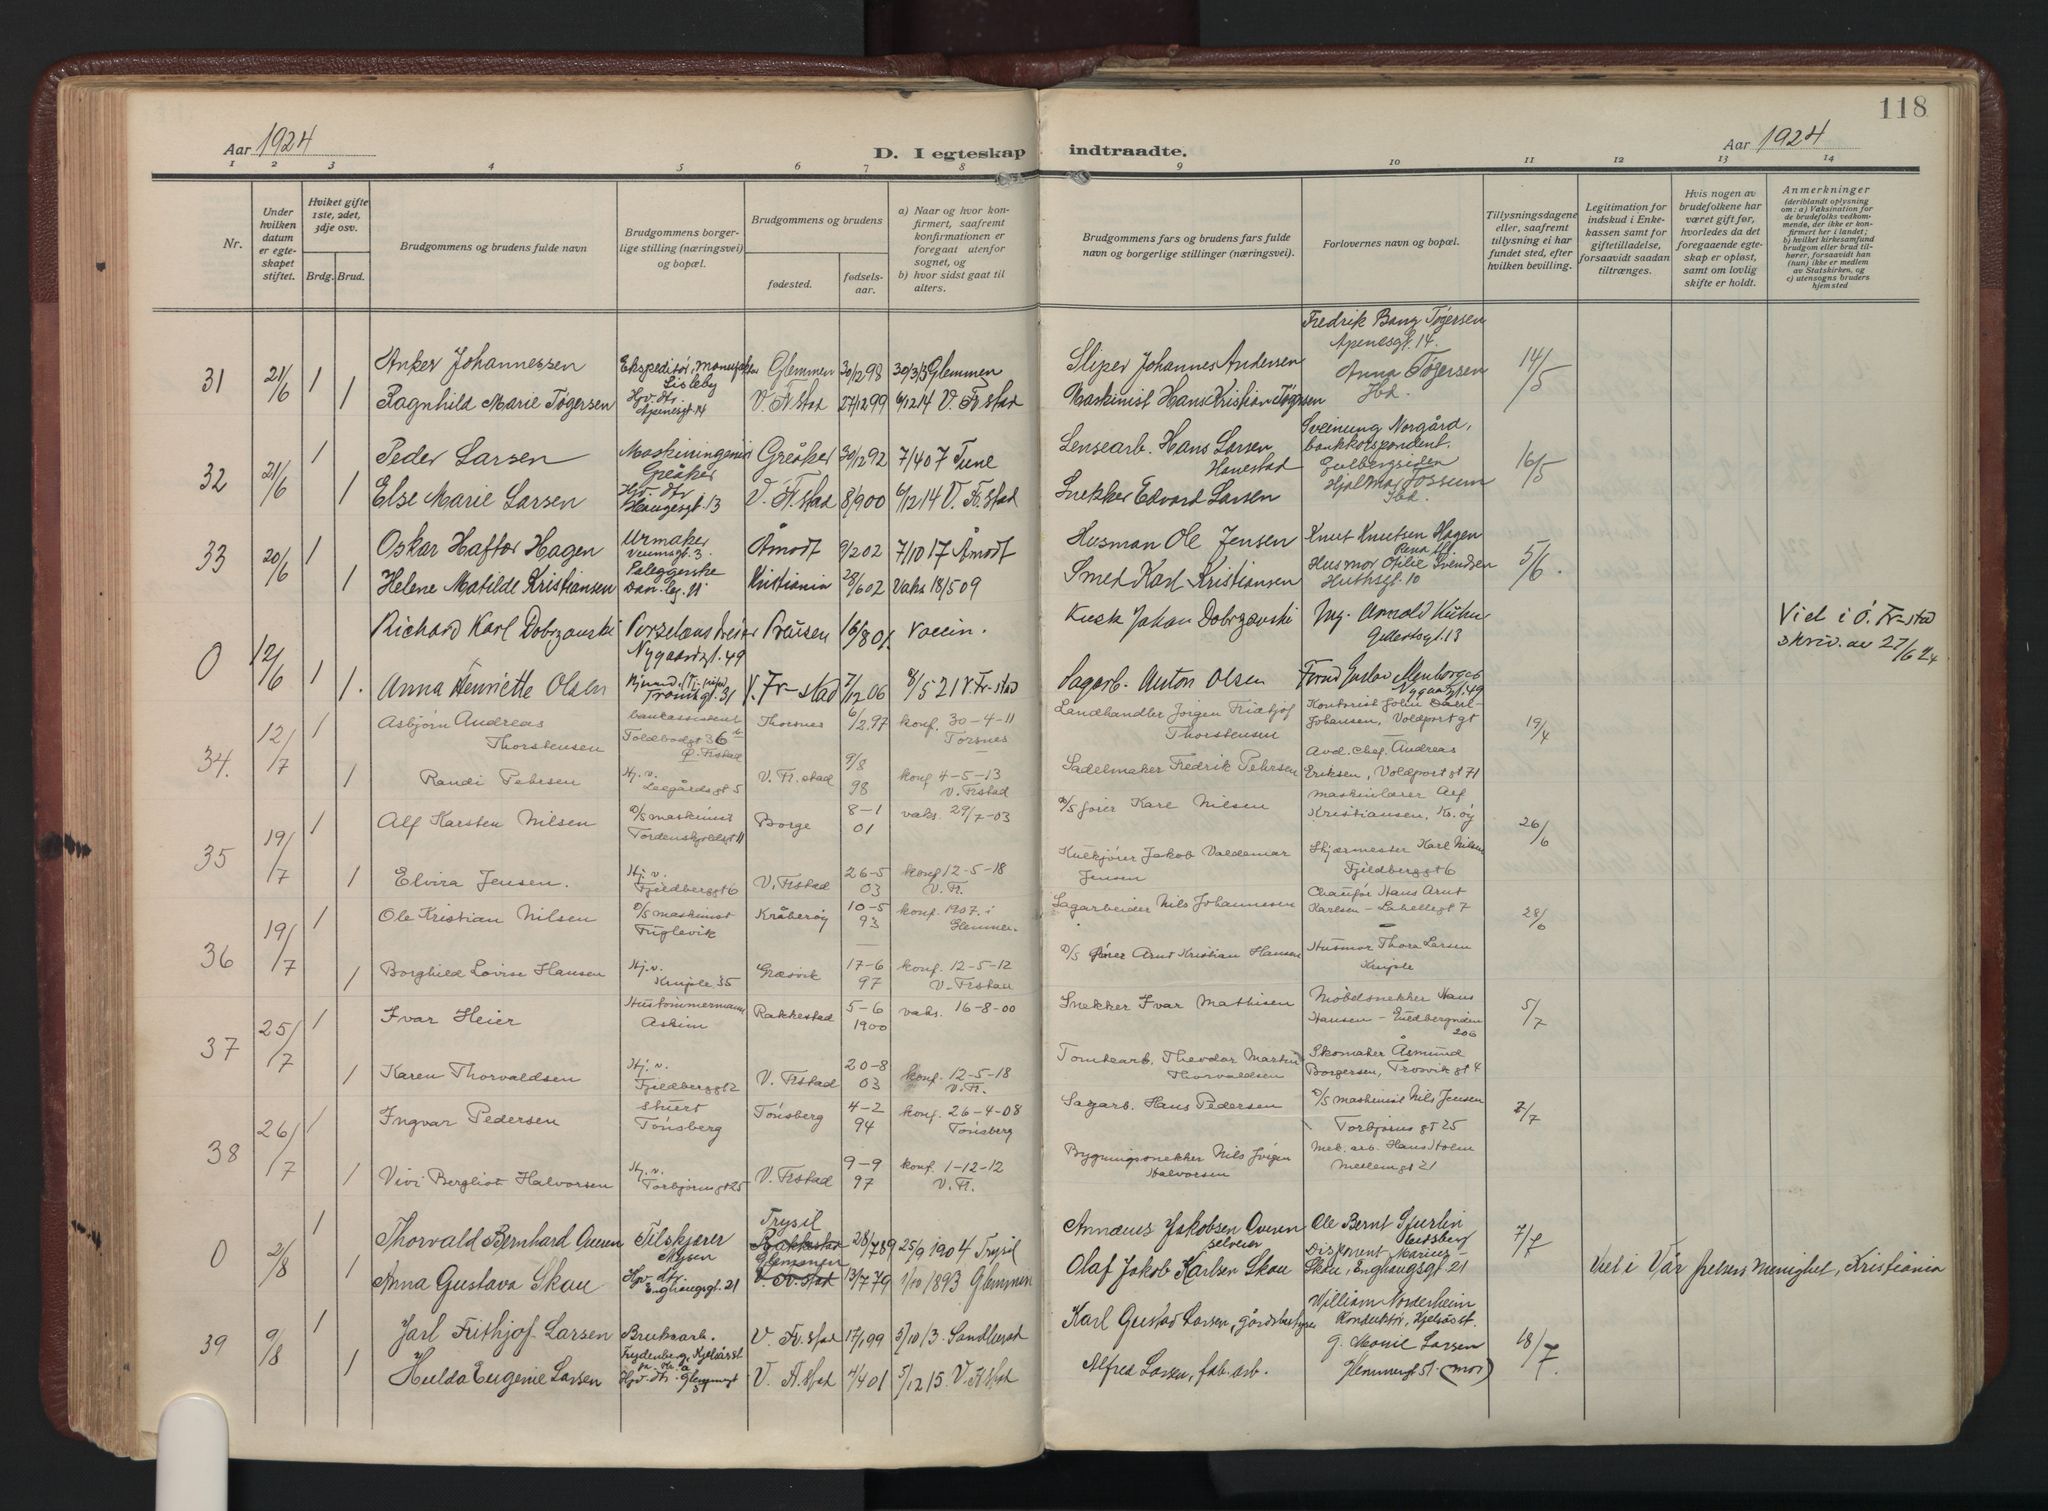 118
Aar 1924
D. I egteskap indtraadte.
Aar 1924
1 2 3 4 5 6 7 8 9 10 11 12 13 14
Nr.
Under hvilken datum er egteskapet stiftet.
Hviket gifte 1ste, 2det, 3dje osv.
Brdg. Brud.
Brudgommens og brudens fulde navn
Brudgommens borgerlige stilling (næringsvei) og bopæl.
Brudgommens og brudens
fødested.
fødselsaar.
a) Naar og hvor konfirmert, saafremt konfirmationen er foregaat utenfor sognet, og
b) hvor sidst gaat til alters.
Brudgommens fars og brudens fars fulde navn og borgerlige stillinger (næringsvei).
Forlovernes navn og bopæl.
Tillysningsdagene eller, saafremt tillysning ei har fundet sted, efter hvilken bevilling.
Legitimation for indskud i Enkekassen samt for giftetilladelse, forsaavidt saadan tiltrænges.
Hvis nogen av brudefolkene har været gift før, hvorledes da det foregaaende egteskap er opløst, samt om lovlig skifte er holdt.
Anmerkninger
(deriblandt oplysning om: a) Vaksination for de brudefolks vedkommende, der ikke er konfirmert her i landet; b) hvilket kirkesamfund brudgom eller brud tilhører, forsaavidt han (hun) ikke er medlem av Statskirken, og c) utensogns bruders hjemsted
31 21/6 1 Anker Johannessen Ekspeditør, Lisleby Glemmen 30/12 98 30/3 13 Glemmen Sliper Johannes Andersen Fredrik Bang Tøgersen Apenesgt. 14. 14/5
1 Ragnhild Marie Tøgersen Hjv. dtr. Apenesgt 14 V. Fr.stad 27/12 99 6/12 14 V. Fr.stad Maskinist Hans Kristian Tøgersen Anna Tøgersen Ibd.
32 21/6 1 Peder Larsen Maskiningeniør Greåker Greåker 30/12 92 7/4 07 Tune Lensearb. Hans Larsen Hanestad Sveinung Norgård, bankkorspondent. 16/5
1 Else Marie Larsen Hjv. dtr Haugesgt. 13 V. Fr.stad 8/1 900 6/12 14 V. Fr.stad Snekker Edvard Larsen Hjalmar Fossum Ibd.
33 20/6 1 Oskar Haftor Hagen Urmaker Veumsgt. 3. Åmodt 9/2 02 7/10 17 Åmodt Husman Ole Jensen Knut Knutsen Hagen Rena 5/6.
1 Helene Matilde Kristiansen Paleggerske Kristiania 28/6 02 Vaks 18/5 09 Smed Karl Kristiansen Husmor Otilie Svendsen Huthsgt. 10
0 12/6 1 Richard Karl Dobrzanski Porselæns Nygaardsgt. 49 Prøisen 16/8 01. Vaccin. Kusk Johan Dobrzovski Ing. Arnold Kühn Gellertsgt. 13 Viet i Ö. Fr-stad skriv. av 27/6 24
1. Anna Henriette Olsen Tromsgt. 31 V. Fr-stad 7/12 06 8/5 21 V. Fr-stad Sagarb. Anton Olsen Nygaardsgt. 49
34. 12/7 1 Asbjørn Andreas Thorstensen bankassistent Toldbodgt 36 b Ø. Frstad Thorsnes 6/2.97 konf. 30-4-11 Torsnes Landhandler Jørgen Fridtjof Thorstensen Kontorist John Johansen, Voldportgt 19/4
1 Randi Pehrsen Hj. v. Leegårdsgt 5 V. Fr.stad 9/8 98 konf 4-5-13 V. Frstad Sadelmaker Fredrik Pehrsen Avd. chef. Andreas Eriksen, Voldportgt 71
35 19/7 1 Alf Karsten Nilsen D/S maskinist Tordenskjoldsgt 11 Borge 8-1 01 vaks. 29/7-03 D/S fører Karl Nilsen Maskinlærer Alf Kristiansen, K. øy 26/6
1 Elvira Jensen. Hj. v. Fjeldberggt 6 V. Frstad 26-5 03 konf 12-5-18 V. Fr. Kulkjører Jakob Valdemar Jensen Skjærmester Karl Nilsen Fjeldberggt 6
36 19/7 1 Ole Kristian Nilsen D/S maskinist Fuglevik Kråkerøy 10-5 93 konf. 1907. i Glemmen. Sagarbeider Nils Johannessen Chaufør Hans Arnt Karlsen - Labellesgt 7 28/6
1 Borghild Lovise Hansen Hj. v. Kniple 35 Græsvik 17-6 97 konf. 12-5-12 V. Frstad D/S fører Arnt Kristian Hansen Husmor Thora Larsen Kniple
37 25/7 1 Ivar Heier Hustømmermann Askim Rakkestad 5-6 1900 vaks. 16-8-00 Snekker Ivar Mathisen Møbelsnekker Hans Hansen - 206 5/7
1 Karen Thorvaldsen Hj. v. Fjeldberggt 2 V. Frstad 20-8 03 konf. 12-5-18 V. Fr. Tomtearb. Theodor Martin Thorvaldsen Skomaker Åsmund Borgersen, Trosvikgt 4
38 26/7 1 Ingvar Pedersen stuert Tønsberg Tønsberg 4-2 94 konf. 26-4-08 Tønsberg Sagarb. Hans Pedersen D/S maskinist Nils Jensen Torbjørnsgt 25 7/7
1 Vivi Bergliot Halvorsen Hj. v. Torbjørnsgt 25 V. Frstad 9-9 97 konf. 1-12-12 V. Fr. Bygningssnekker Nils Halvorsen Mek. arb. Hans Holm Mellemgt 21
0 2/8 1 Thorvald Bernhard Overen Tilskjærer Mysen Trysil Rakkestad 28/7 89 25/9 1904 Trysil Annæus Jakobsen Overen selveier Ole Bernt 7/7
1 Anna Gustava Skau Hjv. dtr. Enghaugsgt. 21 Glemmen V. Fr.stad 13/7 79 1/10 1893 Glemmen Olaf Jakob Karlsen Skau Disponent Marius Skau, Enghaugsgt. 21 Viet i Vår frelsers menighet, Kristiania
39 9/8 1 Jarl Frithjof Larsen Bruksarb. V. Fr.stad 17/1 99 5/10 13. Karl Gustav Larsen, gårdsbestyrer William Norderheim Konduktør, Kjelsåsst. 18/7.
1 Hulda Eugenie Larsen Hjv. dtr. V. Fr.stad 4/4 01 5/12 15. V. Fr.stad Alfred Larsen, fab. arb. Larsen Glemmengt 51 (mor)